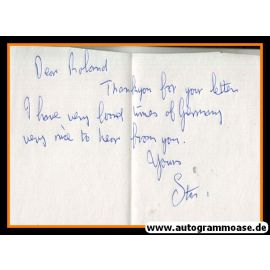 Dear Roland
Thankyou for your letter
I have very fond times of Germany
very nice to hear from you.
Yours
Stan.
www.autogrammoase.de